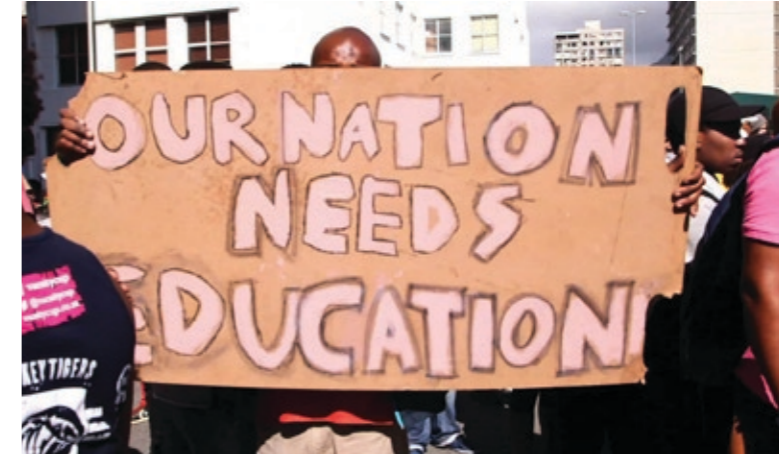 OUR NATION
NEEDS
EDUCATION!
KEY TIGERS